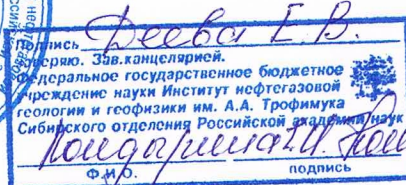 Подпись Деева Е.В.
Заверяю. Зав.канцелярией.
Федеральное государственное бюджетное
учреждение науки Институт нефтегазовой
геологии и геофизики им. А.А. Трофимука
Сибирского отделения Российской академии наук
Ф.И.О. подпись